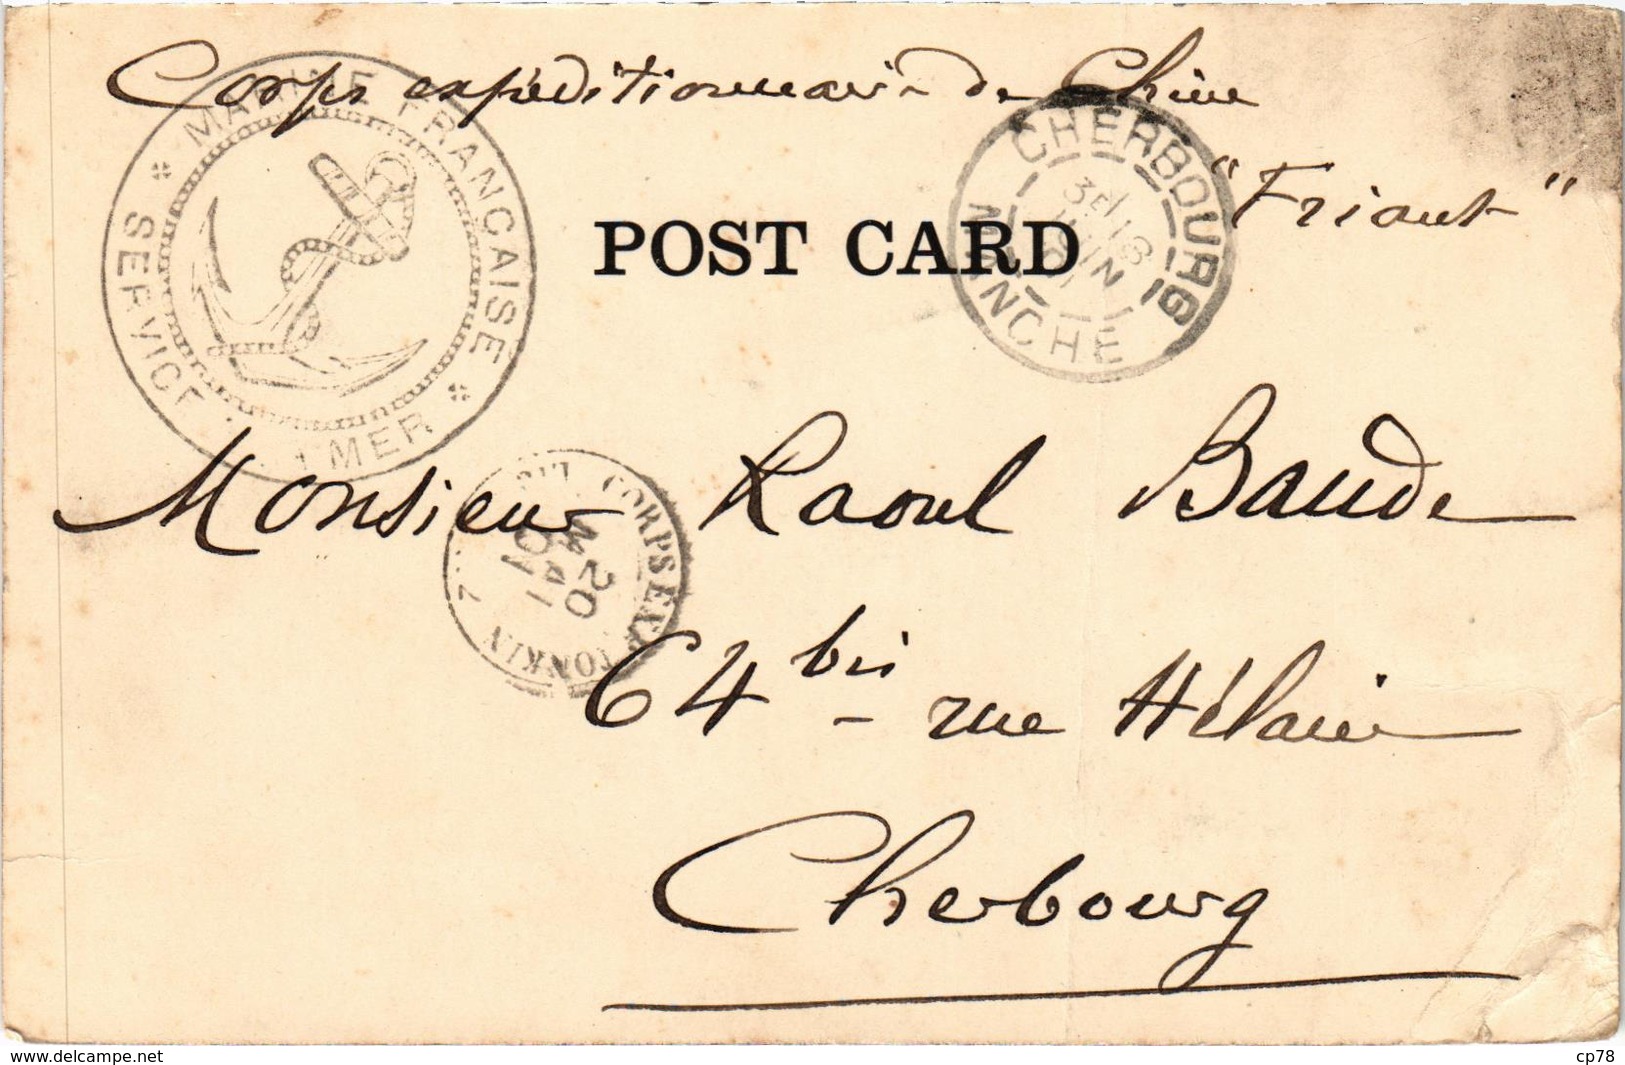 Corps expéditionnaire de Chine
"Friant"
POST CARD
MARINE FRANÇAISE
SERVICE MER
CHERBOURG
MANCHE
3E /
18
JUIN
01
Monsieur Raoul Baude
CORPS EXP
TONKIN
20
MAI
01
64 bis - rue Hélain
Cherbourg
www.delcampe.net
cp78